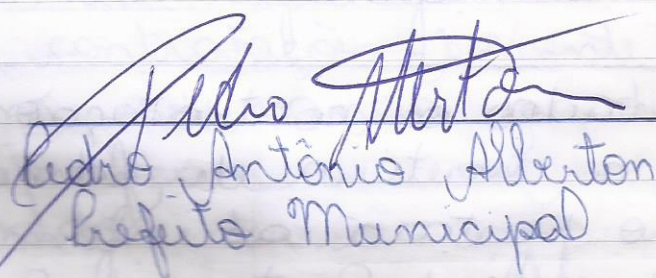 Pedro Alberton
Pedro Antônio Alberton
Prefeito Municipal